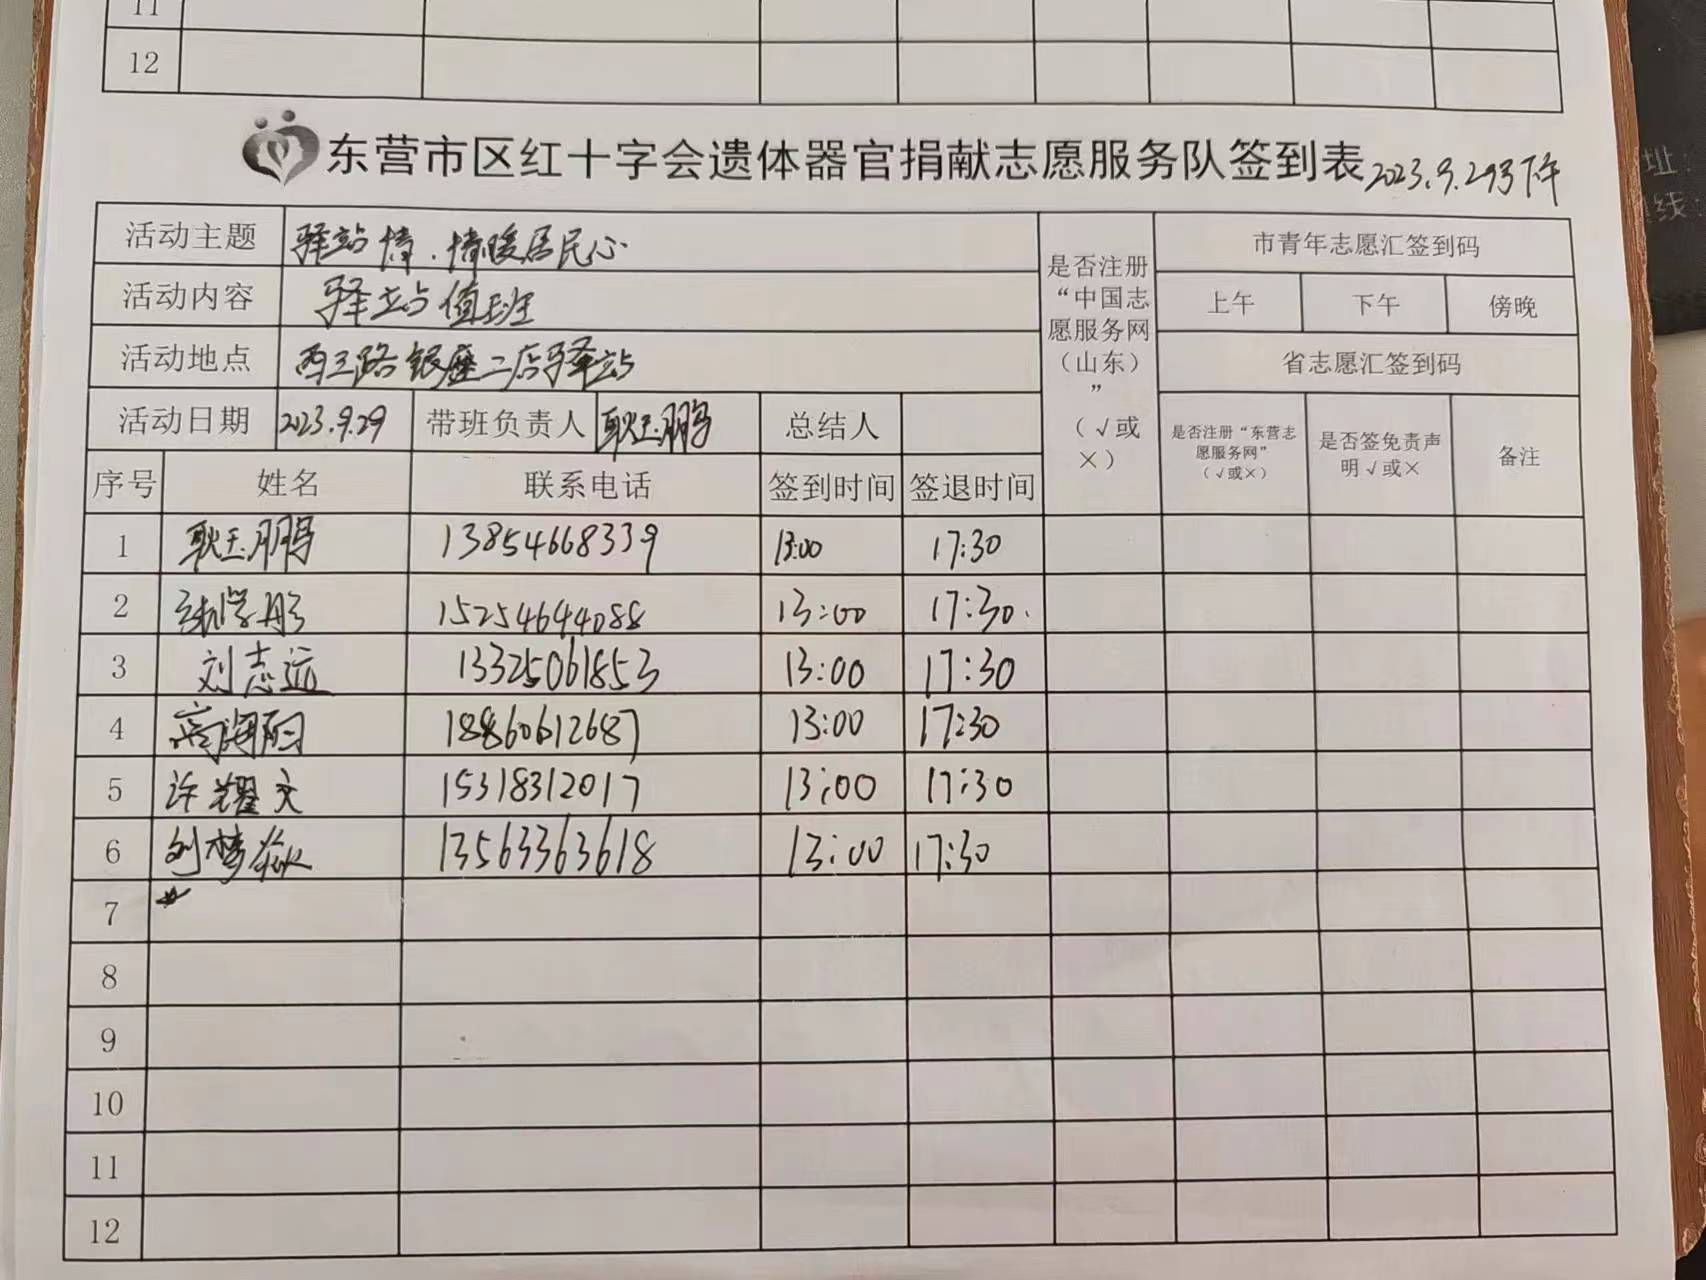 11
12
东营市区红十字会遗体器官捐献志愿服务队签到表 2023.9.29号下午
活动主题 驿站情.情暖居民心 是否注册“中国志愿服务网（山东）”（√或×） 市青年志愿汇签到码
活动内容 驿站值班 上午 下午 傍晚
活动地点 西三路银座二店驿站 省志愿汇签到码
活动日期 2023.9.29 带班负责人 耿玉鹏 总结人 是否注册“东营志愿服务网”（√或×） 是否签免责声明√或× 备注
序号 姓名 联系电话 签到时间 签退时间
1 耿玉鹏 13854668339 13:00 17:30
2 15254644088 13:00 17:30.
3 刘志远 13325061853 13:00 17:30
4 高海阳 18860612687 13:00 17:30
5 许耀文 15318312017 13:00 17:30
6 刘梦 13563363618 13:00 17:30
7
8
9
10
11
12
址:
线: